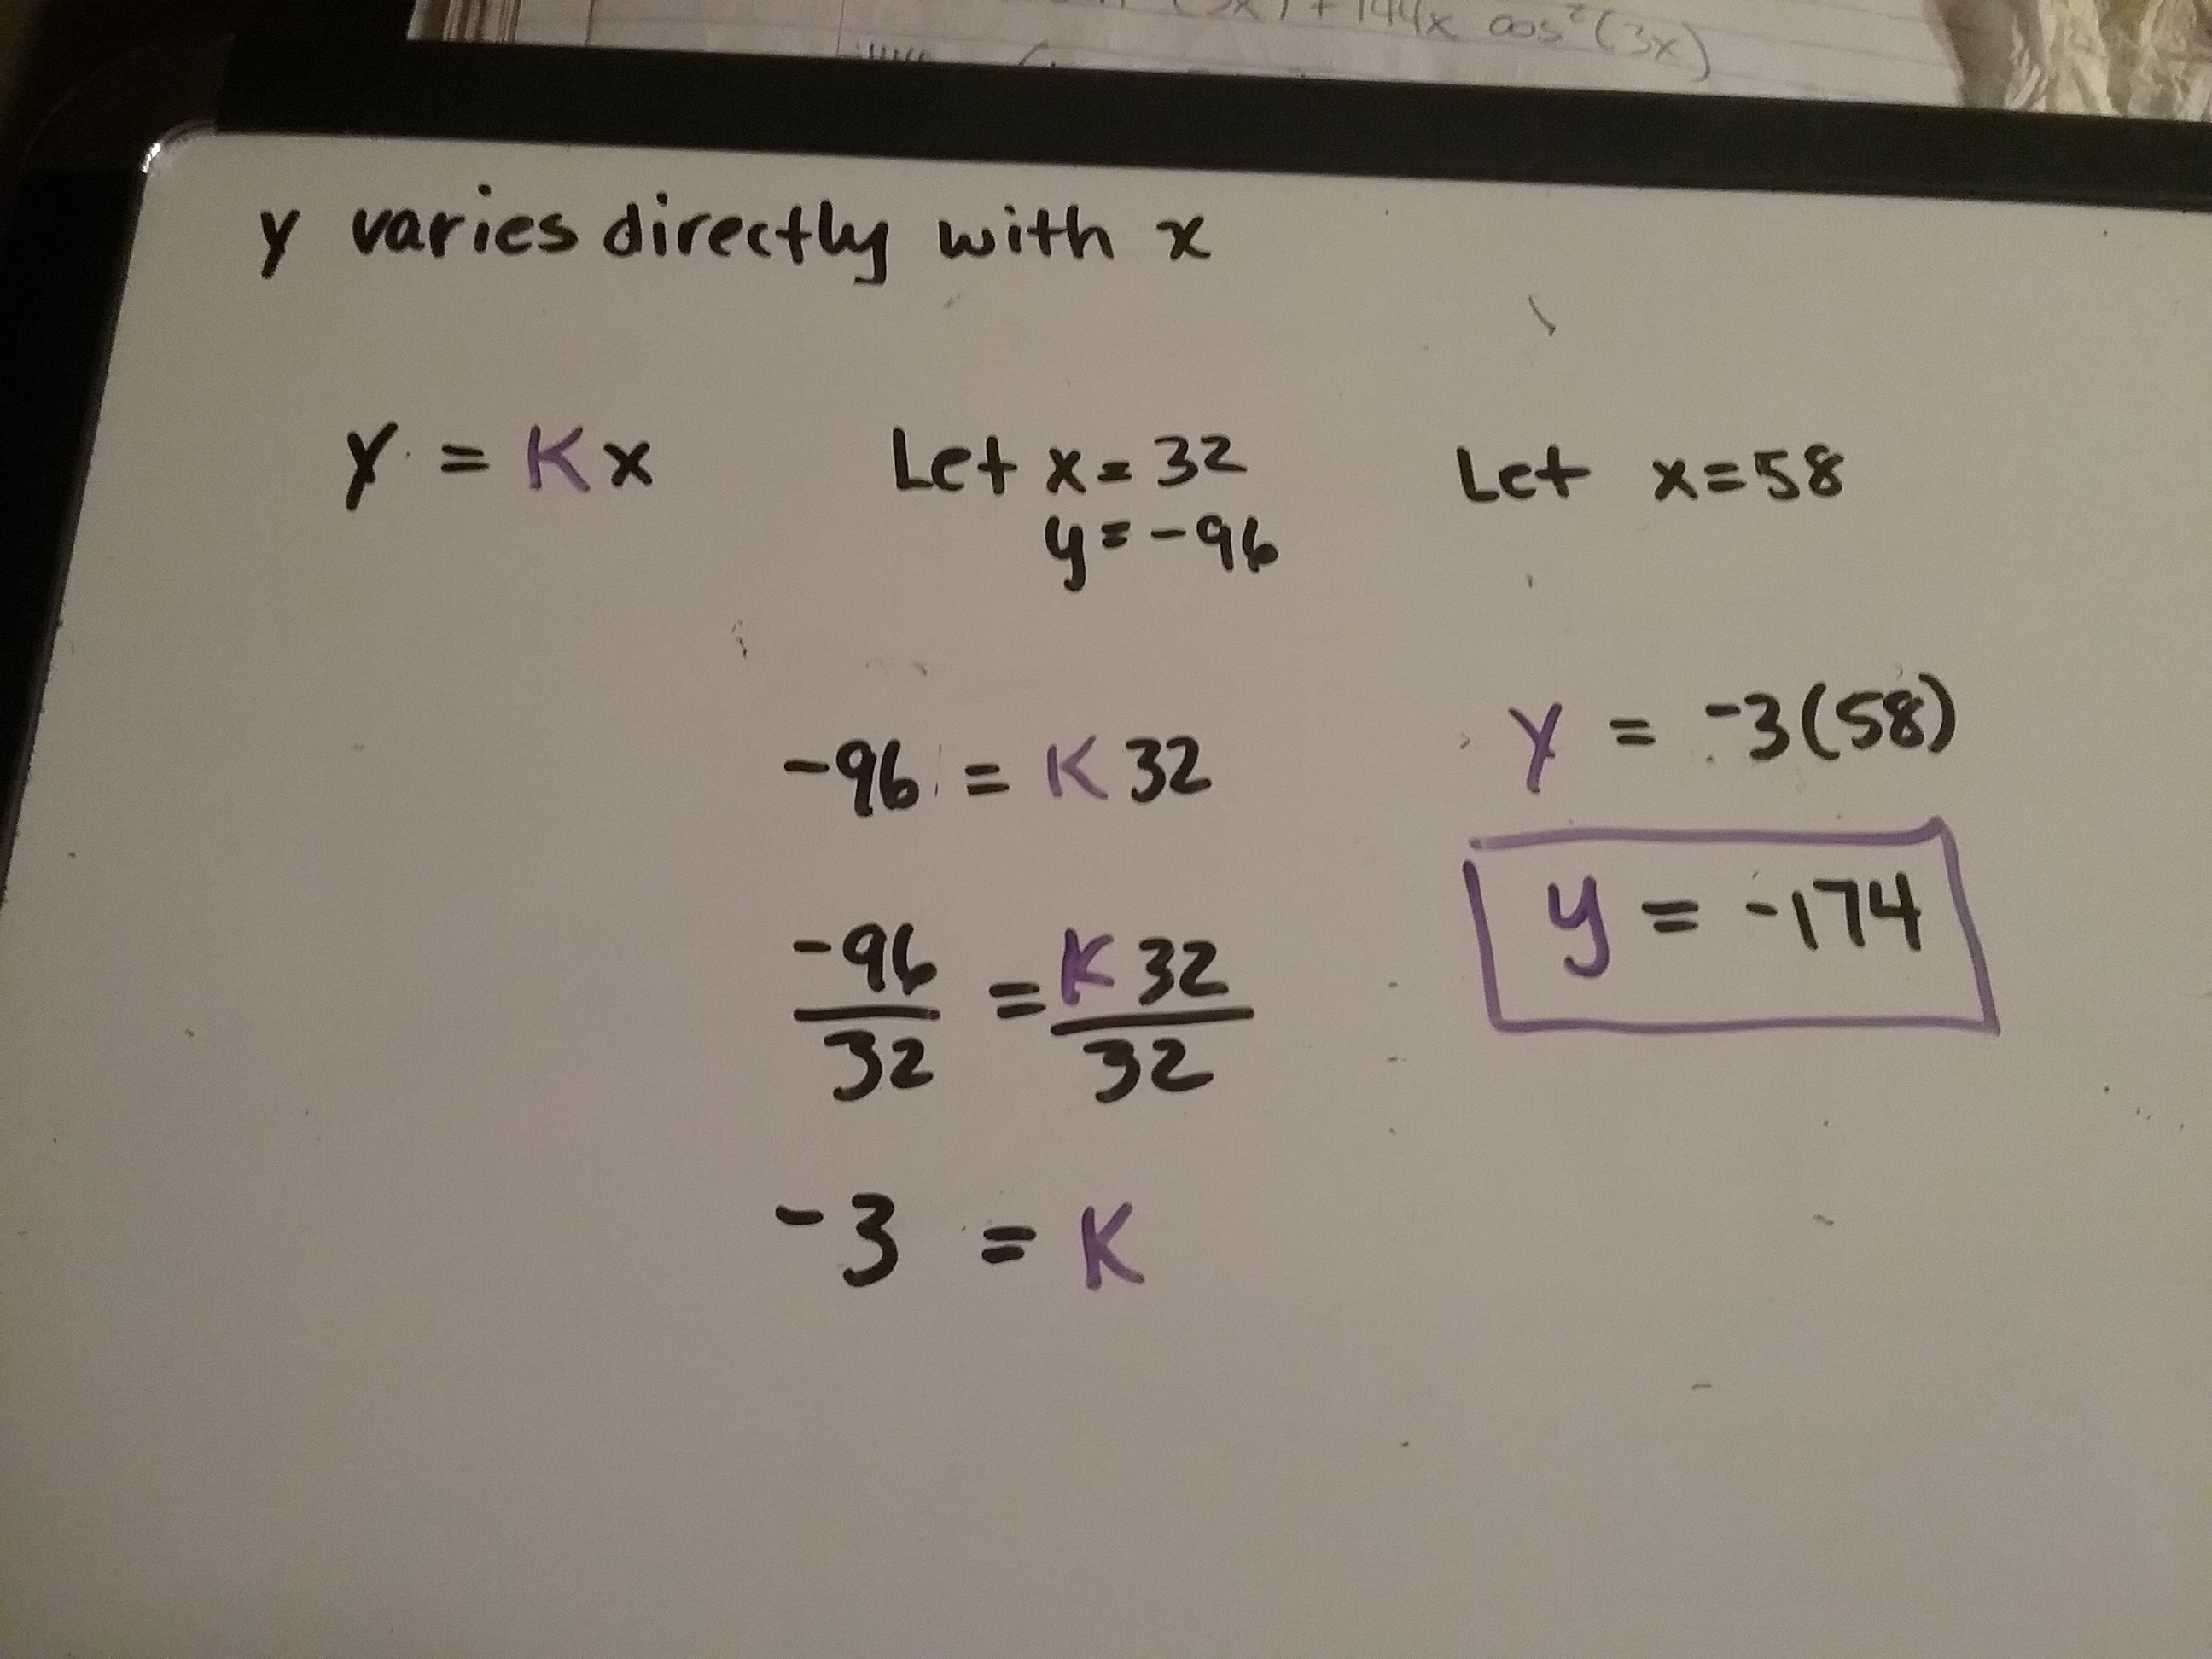 +144x cos²(3x)
y varies directly with x
y = Kx
Let x = 32
y = -96
-96 = K 32
-96/32 = K 32/32
-3 = K
Let x = 58
y = -3(58)
y = -174